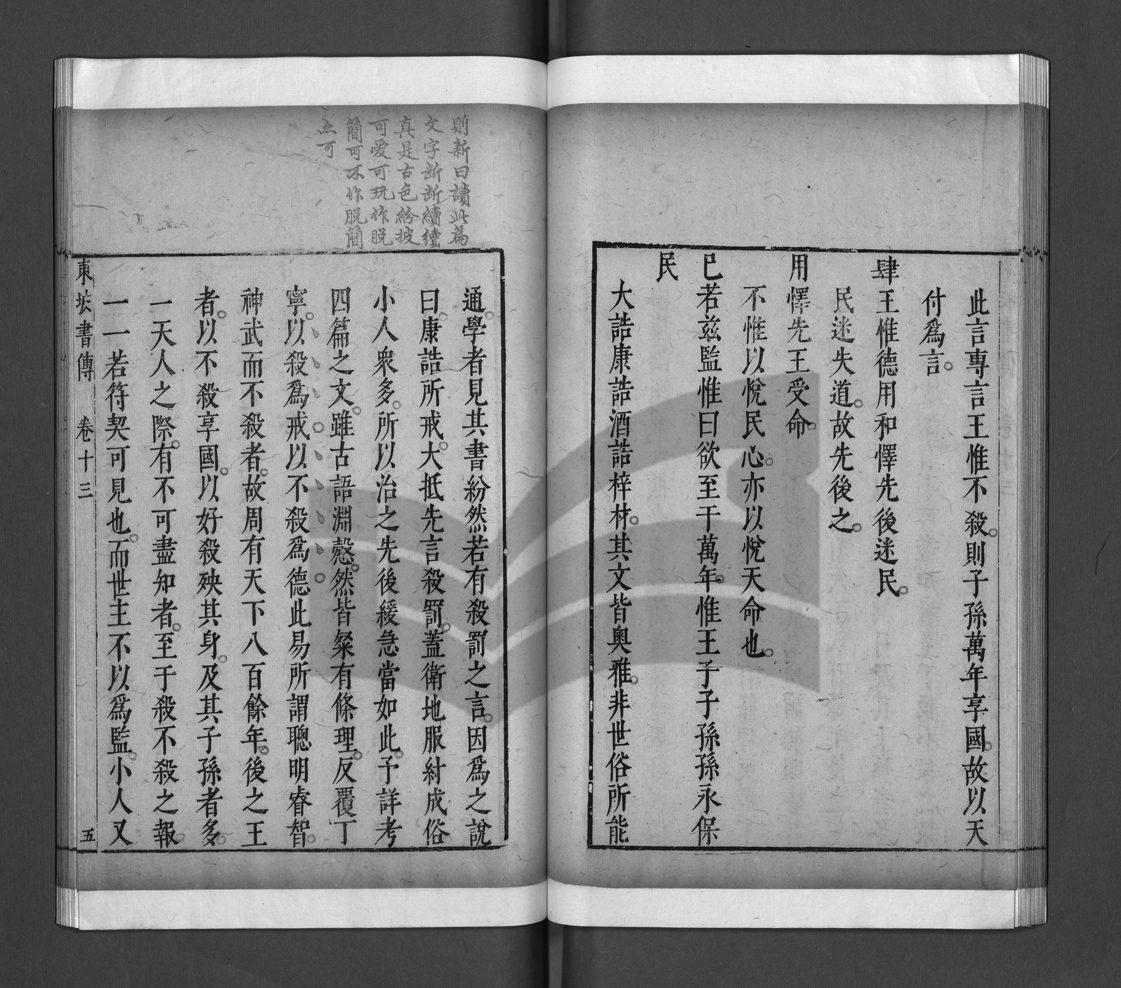 此言專言王惟不殺則子孫萬年享國故以天
付爲言
肆王惟德用和懌先後迷民
民迷失道故先後之
用懌先王受命
不惟以悅民心亦以悅天命也
已若茲監惟曰欲至于萬年惟王子子孫孫永保
民
大誥康誥酒誥梓材其文皆奧雅非世俗所能
則新曰讀此篇
文字斷斷續續
真是古色紛披
可爱可玩作脫
簡可不作脫簡
亦可
通學者見其書紛然若有殺罰之言因爲之說
曰康誥所戒大抵先言殺罰蓋衛地服紂成俗
小人衆多所以治之先後緩急當如此予詳考
四篇之文雖古語淵慤然皆粲有條理反覆丁
寧以殺爲戒以不殺爲德此易所謂聰明睿智
神武而不殺者故周有天下八百餘年後之王
者以不殺享國以好殺殃其身及其子孫者多
一天人之際有不可盡知者至于殺不殺之報
一一若符契可見也而世主不以爲監小人又
東坡書傳 卷十三 五